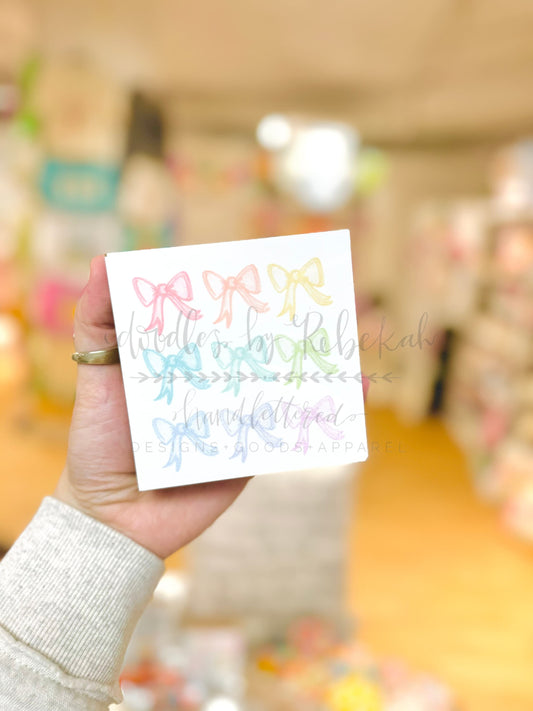 doodles by Rebekah
handlettered
DESIGNS + GOODS + APPAREL